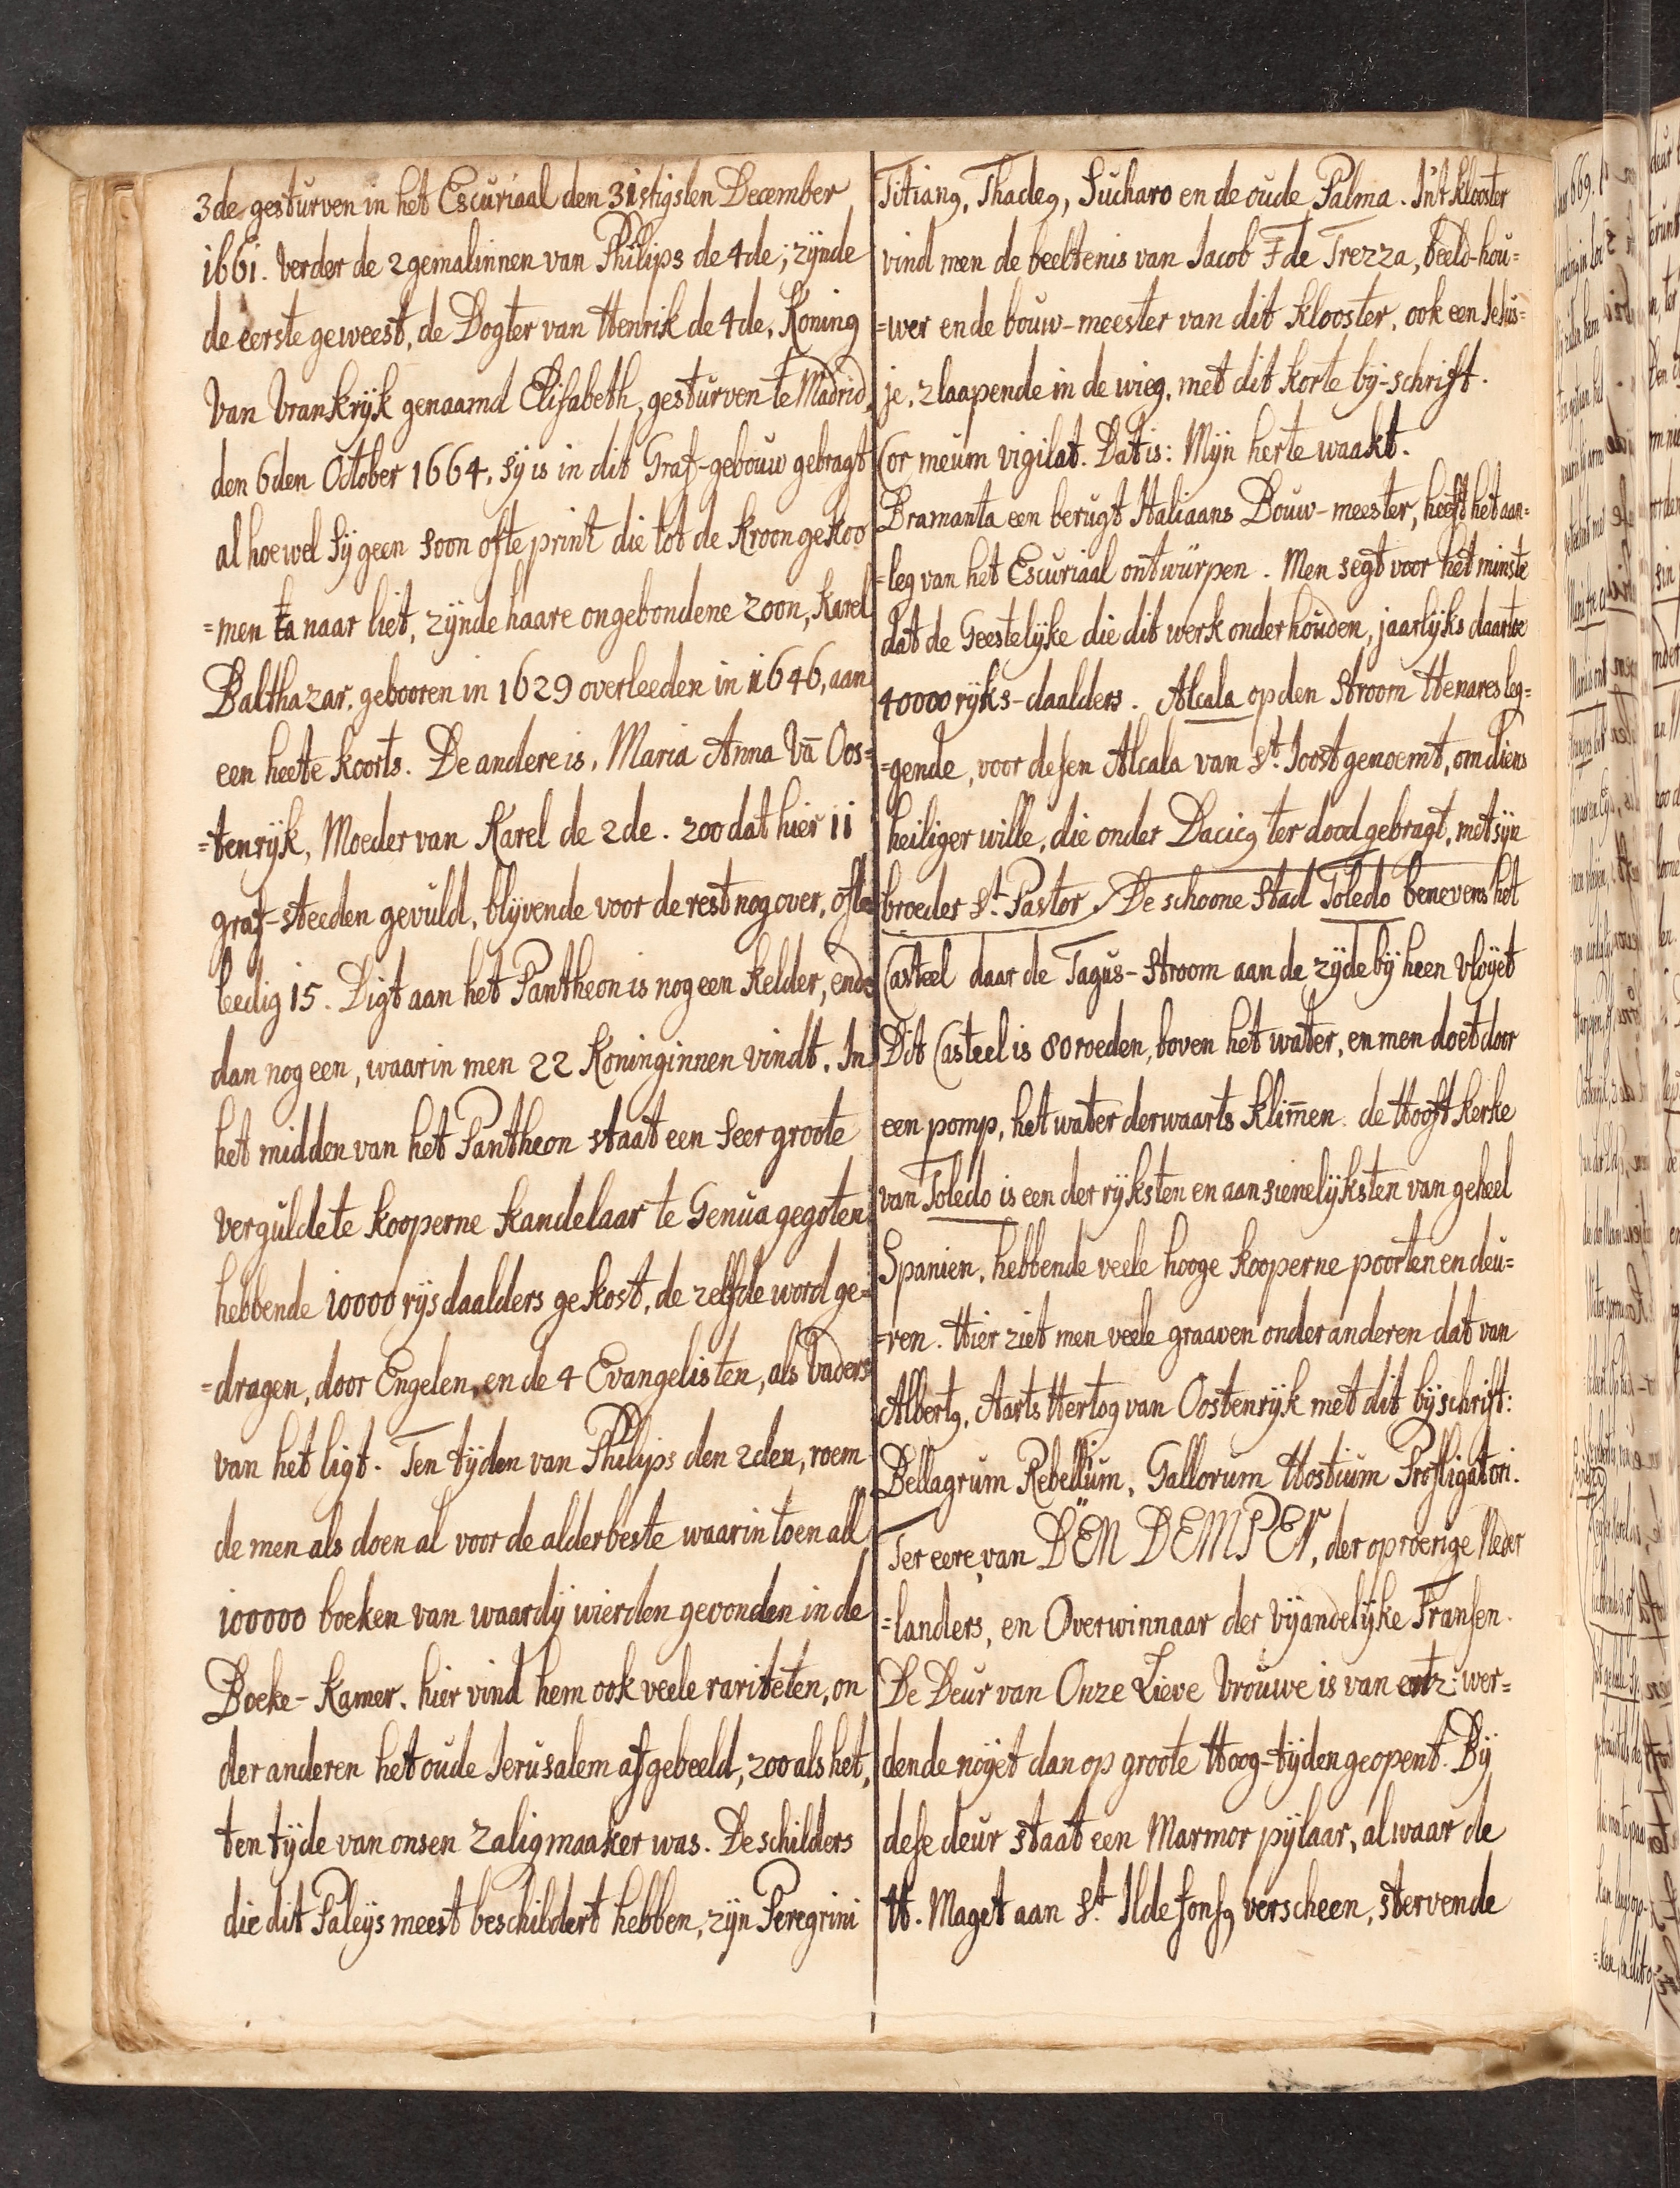 3de gesturven in het Escuriaal den 31stigsten December
1661. Verder de 2 gemalinnen van Philips de 4de; zÿnde
de eerste geweest, de Dogter van Henrik de 4de, Koning
van Vrankrÿk genaamd Elisabeth, gesturven te Madrid,
den 6den October 1664. sÿ is in dit Graf-gebouw gebragt
al hoewel sÿ geen soon ofte print die tot de kroon gekoo
=men ta naar liet, zÿnde haare ongebondene zoon, Karel
Balthazar, gebooren in 1629 overleeden in 1646, aan
een heete koorts. De andere is, Maria Anna vā Oos=
=tenrÿk, Moeder van Karel de 2de. zoo dat hier 11
graf-steeden gevuld, blÿvende voor de rest nog over, ofte
leedig 15. Digt aan het Pantheon is nog een kelder, ende
dan nog een, waarin men 22 Koninginnen vindt. In
het midden van het Pantheon staat een seer groote
vergulde te kooperne kandelaar te Genua gegoten
hebbende 10000 rÿsdaalders gekost, de zelfde word ge=
=dragen, door Engelen, en de 4 Evangelisten, als vaders
van het ligt. Ten tÿden van Philips den 2den, roem
de men als doen al voor de alderbeste waarin toen all
100000 boeken van waardÿ wierden gevonden in de
Boeke-Kamer. hier vind hem ook veele rariteten, on
der anderen het oude Jerusalem afgebeeld, zoo als het,
ten tÿde van onsen Zaligmaaker was. De schilders
die dit Paleÿs meest beschildert hebben, zÿn Peregrini
Titianꝰ, Thadeꝰ, Sucharo en de oude Palma. In't klooster
vind men de beeltenis van Jacob F de Trezza, beeld-hou=
=wer ende bouw-meester van dit klooster, ook een Jesus=
je, zlaapende in de wieg, met dit korte bÿ-schrift.
Cor meum vigilat. Dat is: Mÿn herte waakt.
Bramanta een berugt Italiaans Bouw-meester, heeft het aan=
=leg van het Escuriaal ontwürpen. Men segt voor het minste
dat de Geestelÿke die dit werk onderhouden, jaarlÿks daartoe
40000 rÿks-daalders. Alcala op den stroom Henares leg=
=gende, voor desen Alcala van St. Joost genoemt, om diens
heiliger wille, die onder Dacieꝰ ter dood gebragt, met sÿn
broeder St. Pastor. De schoone Stad Toledo benevens het
Casteel daar de Tagus-stroom aan de zÿde bÿ heen vloÿet
Dit Casteel is 80 roeden, boven het water, en men doet door
een pomp, het water derwaarts klim̄en. de Hooft kerke
van Toledo is een der rÿksten en aansienelÿksten van geheel
Spanien, hebbende veele hooge kooperne poorten en deu=
=ren. Hier ziet men veele graaven onder anderen dat van
Albertꝰ, Aarts Hertog van Oostenrÿk met dit bÿschrift:
Bellagrum Rebellium, Gallorum Hostium Profligatori.
Ter eere van DEN DEMPER, der oproerige Neder
=landers, en Overwinnaar der vÿandelÿke Fransen.
De Deur van Onze Lieve Vrouwe is van ertz: wer=
dende nöÿet dan op groote Hoog-tÿden geopent. Bÿ
dese deur staat een Marmor pÿlaar, alwaar de
H. Maget aan St. Ildefonsꝰ verscheen, stervende